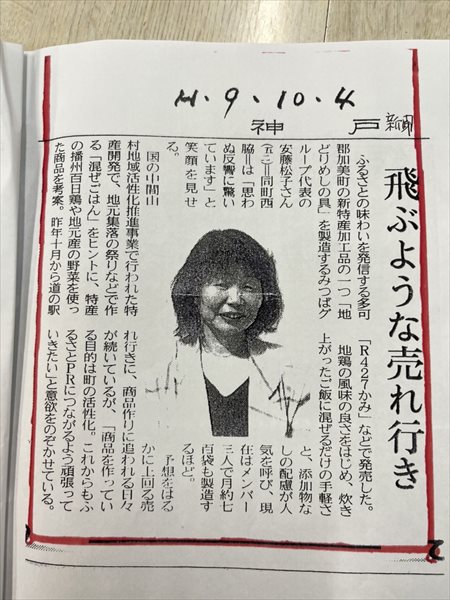 H.9.10.4
神戸新聞
飛ぶような売れ行き
ふるさとの味わいを発信する多可
郡加美町の新特産加工品の一つ「地
どりめしの具」を製造するみつばグ
ループ代表の
安藤松子さん
=同町西
脇=は「思わ
ぬ反響に驚い
ています」と
笑顔を見せ
る。
国の中間山
村地域活性化推進事業で行われた特
産開発で、地元集落の祭りなどで作
る「混ぜごはん」をヒントに、特産
の播州百日鶏や地元産の野菜を使っ
た商品を考案。昨年十月から道の駅
「R427かみ」などで発売した。
地鶏の風味の良さをはじめ、炊き
上がったご飯に混ぜるだけの手軽さ
と、添加物な
しの配慮が人
気を呼び、現
在はメンバー
三人で月約七
百袋も製造す
るほど。
予想をはる
かに上回る売
れ行きに、商品作りに追われる日々
が続いているが、「商品を作ってい
る目的は町の活性化。これからもふ
るさとPRにつながるよう頑張って
いきたい」と意欲をのぞかせている。